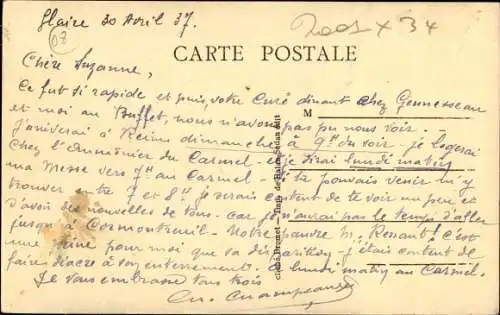 Glaire 30 Avril 37.
2001 x 34
07
CARTE POSTALE
Chère Suzanne,
Ce fut si rapide et puis, votre Curé dinant chez
et moi au Buffet, nous n'avons pas pu nous voir.
J'arriverai à Reims dimanche à 9h du soir - je logerai
chez l'Aumônier du Carmel - et je dirai lundi matin
ma Messe vers 7h au Carmel - Si tu pouvais venir m'y
trouver entre 7 et 8h je serais content de te voir un peu et
d'avoir des nouvelles de tous - car je n'aurai pas le temps d'aller
jusqu'à Cormontreuil - Notre pauvre M. Renault! c'est
une peine pour moi que sa disparition - j'étais content de
faire diacre à son enterrement. à lundi matin au Carmel.
Je vous embrasse tous trois
M